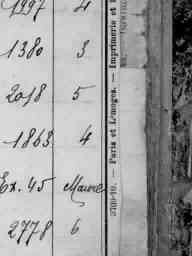 1997 4
1380 3
2018 5
1863 4
Ex. 45 Maurice
2778 6
Paris et Limoges. — Imprimerie et